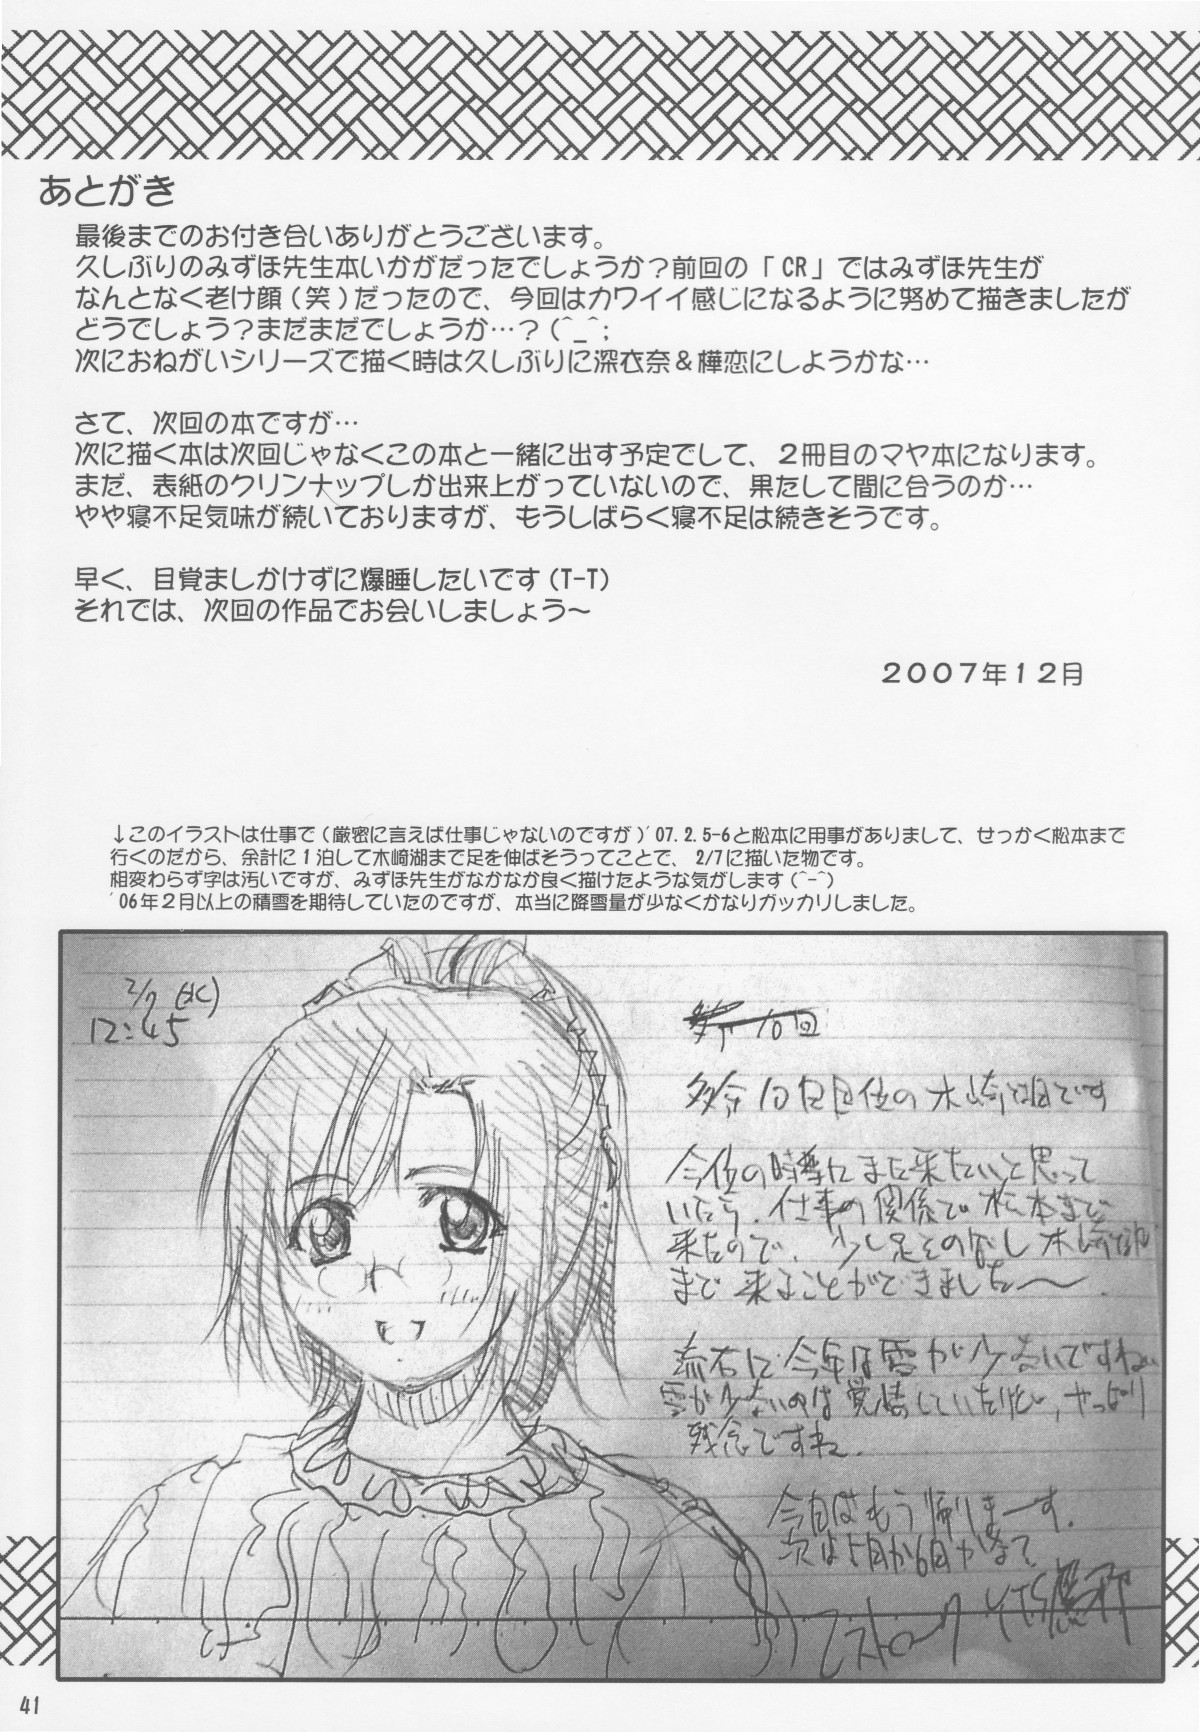 あとがき
最後までのお付き合いありがとうございます。
久しぶりのみずほ先生本いかがだったでしょうか？前回の「CR」ではみずほ先生が
なんとなく老け顔(笑)だったので、今回はカワイイ感じになるように努めて描きましたが
どうでしょう？まだまだでしょうか…？(^_^;
次におねがいシリーズで描く時は久しぶりに深衣奈＆樺恋にしようかな…
さて、次回の本ですが…
次に描く本は次回じゃなくこの本と一緒に出す予定でして、２冊目のマヤ本になります。
まだ、表紙のクリンナップしか出来上がっていないので、果たして間に合うのか…
やや寝不足気味が続いておりますが、もうしばらく寝不足は続きそうです。
早く、目覚ましかけずに爆睡したいです(T-T)
それでは、次回の作品でお会いしましょう～
２００７年１２月
↓このイラストは仕事で(厳密に言えば仕事じゃないのですが)'07.2.5-6と松本に用事がありまして、せっかく松本まで
行くのだから、余計に1泊して木崎湖まで足を伸ばそうってことで、2/7に描いた物です。
相変わらず字は汚いですが、みずほ先生がなかなか良く描けたような気がします(^-^)
'06年2月以上の積雪を期待していたのですが、本当に降雪量が少なくかなりガッカリしました。
2/7 (水)
12:45
10回
多分10回目位の木崎湖です
今位の時季にまた来たいと思って
いたら、仕事の関係で松本まで
来たので、少し足をのばし木崎湖
まで来ることができました〜
流石に今年は雪が少ないですねぇ
雪が少ないのは覚悟していたけど、やっぱり
残念ですね。
今日はもう帰りまーす。
次は5月か6月かなぁ
41